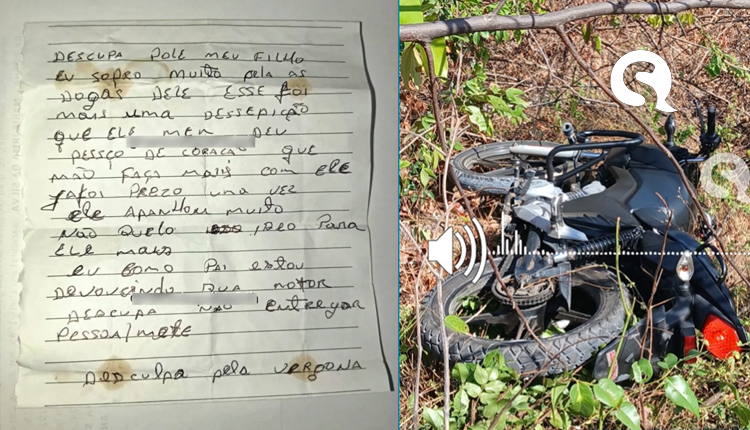 DESCUPA POLE MEU FILHO
EU SOFRO MUITO PELA AS
DOGAS DELE ESSE FOI
MAIS UMA DESSEPIÇÃO
QUE ELE MEU DEU
PESSÇO DE CORAÇÃO QUE
NÃO FAÇA MAIS COM ELE
FOI PREZO UMA VEZ
ELE APANHOU MUITO
NÃO QUELO IDEO PARA
ELE MAIS
EU COMO PAI ESTOU
DEVOVEINDO SUA MOTOR
DESCUPA NÃO ENTREGAR
PESSOALMETE
DESCULPA PELA VERGONA